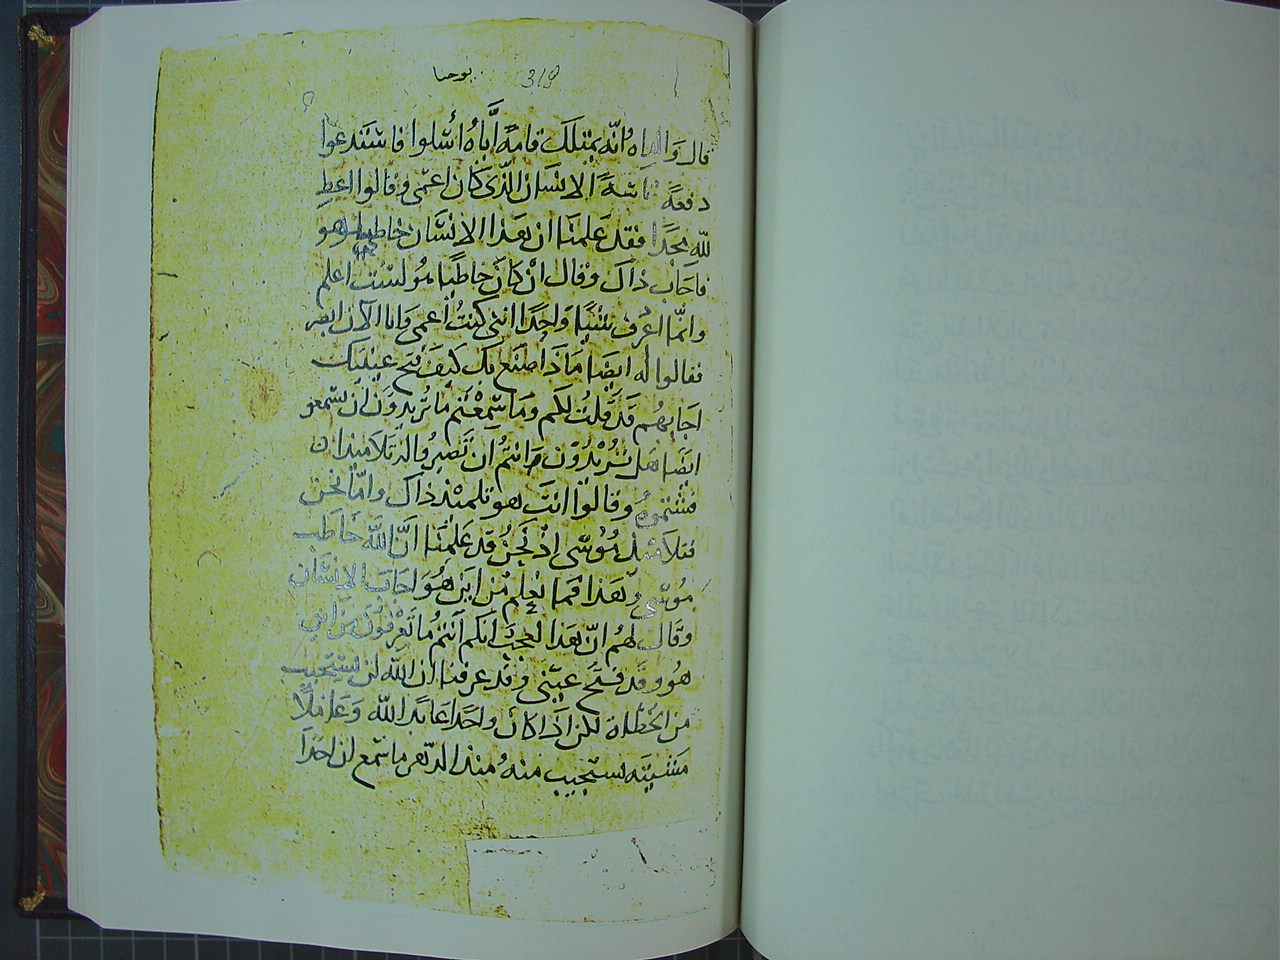 يوحنا 319
قال والداه انّه يمتلك قامةً ايّاه أسلوا فاستدعوا
دفعةً ثانيةً الانسان الذى كان اعمى وقالوا اعطِ
للّه مجدًا فقد علمنا ان هذا الانسان خاطىا هو
فاجاب ذاك وقال ان كان خاطيا هو لست اعلم
وانّما اعرف شيئًا واحدًا اننى كنتُ أعمى وانا الآن ابصر
فقالوا له ايضا ماذا صنع بك كيف فتح عينيك
اجابهم قد قلت لكم وما سمعتم ما تريدون ان تسمعو
ايضا هل تريدون وانتم ان تصيروا له تلاميذ ان
فشتموه وقالوا انت هو تلميذ ذاك وامّا نحن
فتلاميذ موسى إذ نحن قد علمنا انّ اللّه خاطب
موسى وهذا فما نعلم من اين هو اجاب الانسان
وقال لهم انّ هذا لعجب انكم انتم ما تعرفون من اين
هو وقد فتح عينى وقد عرفنا ان اللّه لن يستجيب
من الخطاة لكن اذا كان واحدا عابدا للّه وعاملًا
مشيته يستجيب منه منذ الدهر ما سمع ان احدًا